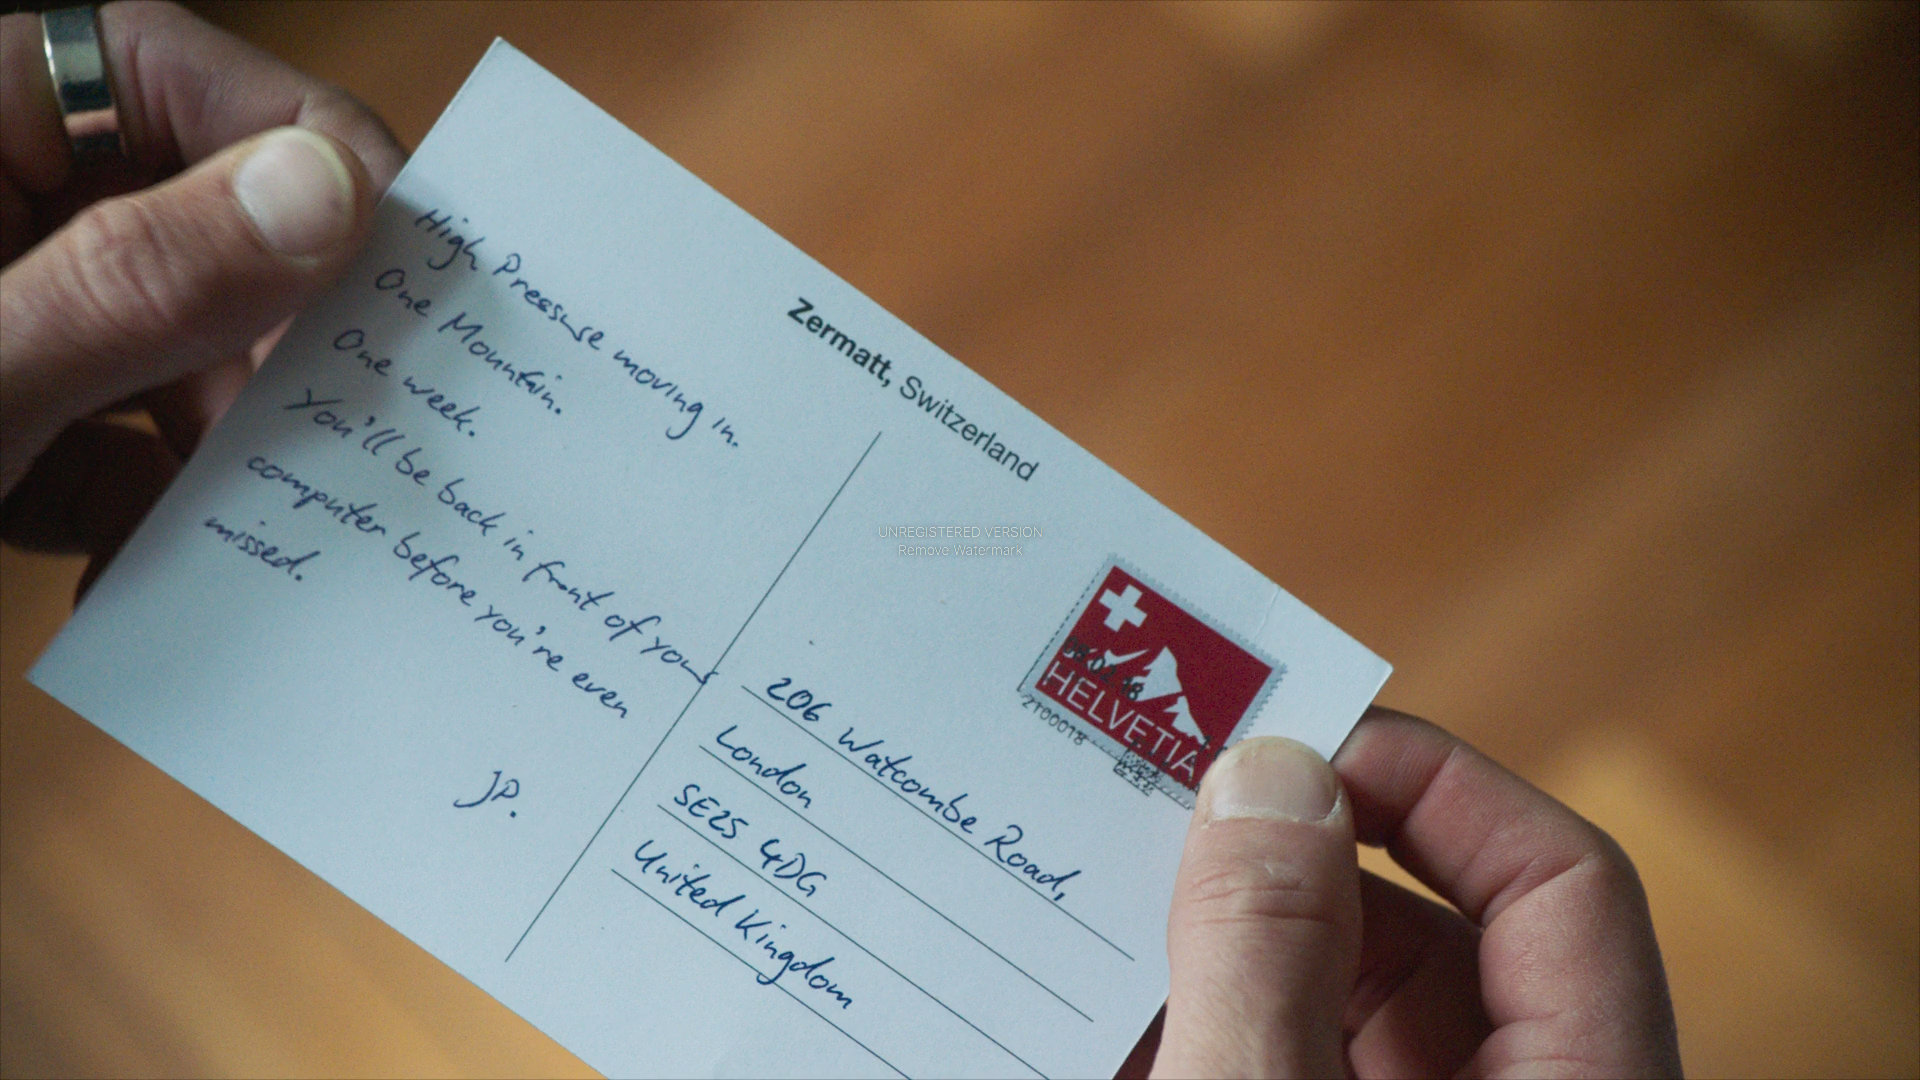 High Pressure moving in.
One Mountain.
One week.
You'll be back in front of your
computer before you're even
missed.
JP.
Zermatt, Switzerland
HELVETIA
206 Watcombe Road,
London
SE25 4DG
United Kingdom
UNREGISTERED VERSION
Remove Watermark